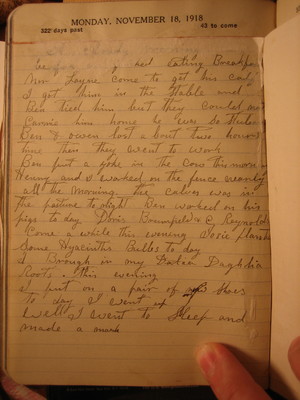 MONDAY, NOVEMBER 18, 1918
322 days past 43 to come
had eating Breakfa
Mr. Layne come to get his calf
I got him in the Stable and
Ben tied him but they could not
Carrie him home he was so
Ben & owen lost a bout two hours
time then they went to work
Ben put a yoke in the Cow this morn
Henry and I worked on the fence nearly
all the morning the calves was in
the pasture to night Ben worked on his
pigs to day Doris Bromfield & C Reynolds
Come a while this evening Josie planted
Some Hyacintha Bulbs to day
I Brough in my Daghlia
Roots this evening
I put on a pair of Shoes
To day I went up
Well I went to Sleep and
made a mark